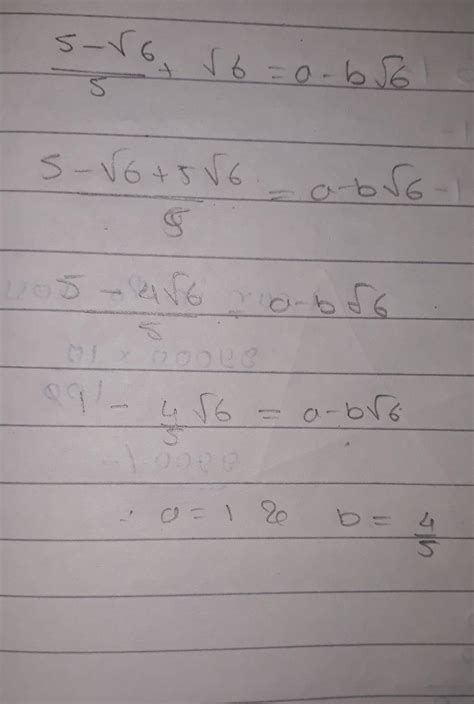 5-√6/5 + √6 = a-b√6
5-√6+5√6/5 = a-b√6
5-4√6/5 = a-b√6
1 - 4/5 √6 = a-b√6
∴ a=1 & b = 4/5